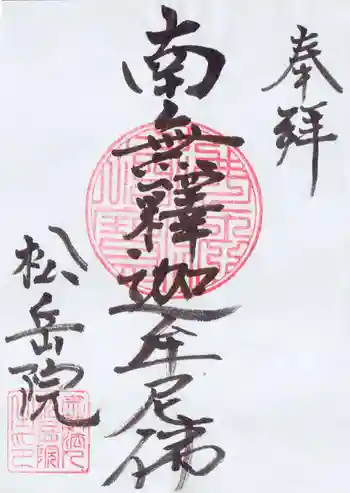 奉拝
南無釋迦牟尼佛
松岳院